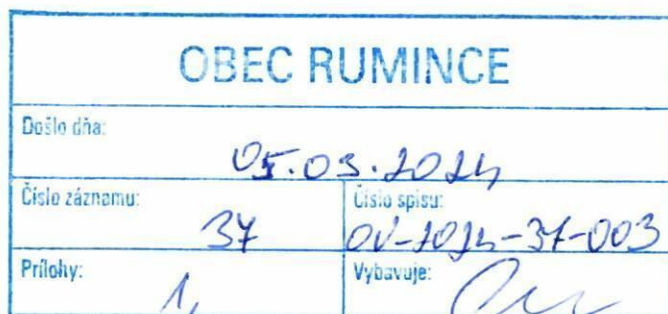 OBEC RUMINCE
Došlo dňa:
05.03.2024
Číslo záznamu:
37
Číslo spisu:
OU-2024-37-003
Prílohy:
1,
Vybavuje: